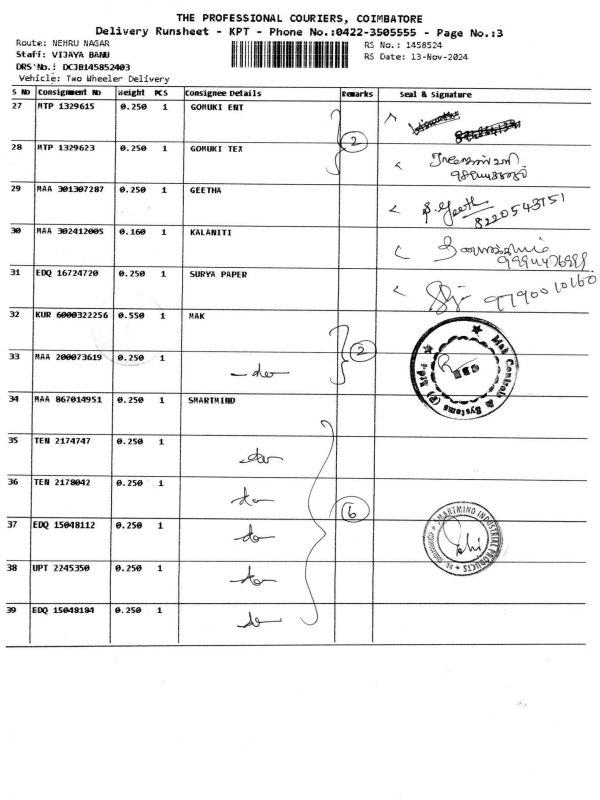 THE PROFESSIONAL COURIERS, COIMBATORE
Delivery Runsheet - KPT - Phone No.:0422-3505555 - Page No.:3
Route: NEHRU NAGAR
RS No.: 1458524
Staff: VIJAYA BANU
RS Date: 13-Nov-2024
DRS No.: DCJB145852403
Vehicle: Two Wheeler Delivery
S No Consignment No Weight PCS Consignee Details Remarks Seal & Signature
27 MTP 1329615 0.250 1 GOMUKI ENT
2
28 MTP 1329623 0.250 1 GOMUKI TEX
29 MAA 301307287 0.250 1 GEETHA S. Geeth
8220543751
30 MAA 302412005 0.160 1 KALANITI
31 EDQ 16724720 0.250 1 SURYA PAPER 9790010160
32 KUR 6000322256 0.550 1 MAK
2 Mak Controls & Systems (P) Ltd
33 MAA 200073619 0.250 1 - do -
34 MAA 867014951 0.250 1 SMARTMIND
35 TEN 2174747 0.250 1 do
36 TEN 2178042 0.250 1 do
6
37 EDQ 15048112 0.250 1 do SMARTMIND INDUSTRIAL PRODUCTS
38 UPT 2245350 0.250 1 do
39 EDQ 15048184 0.250 1 do